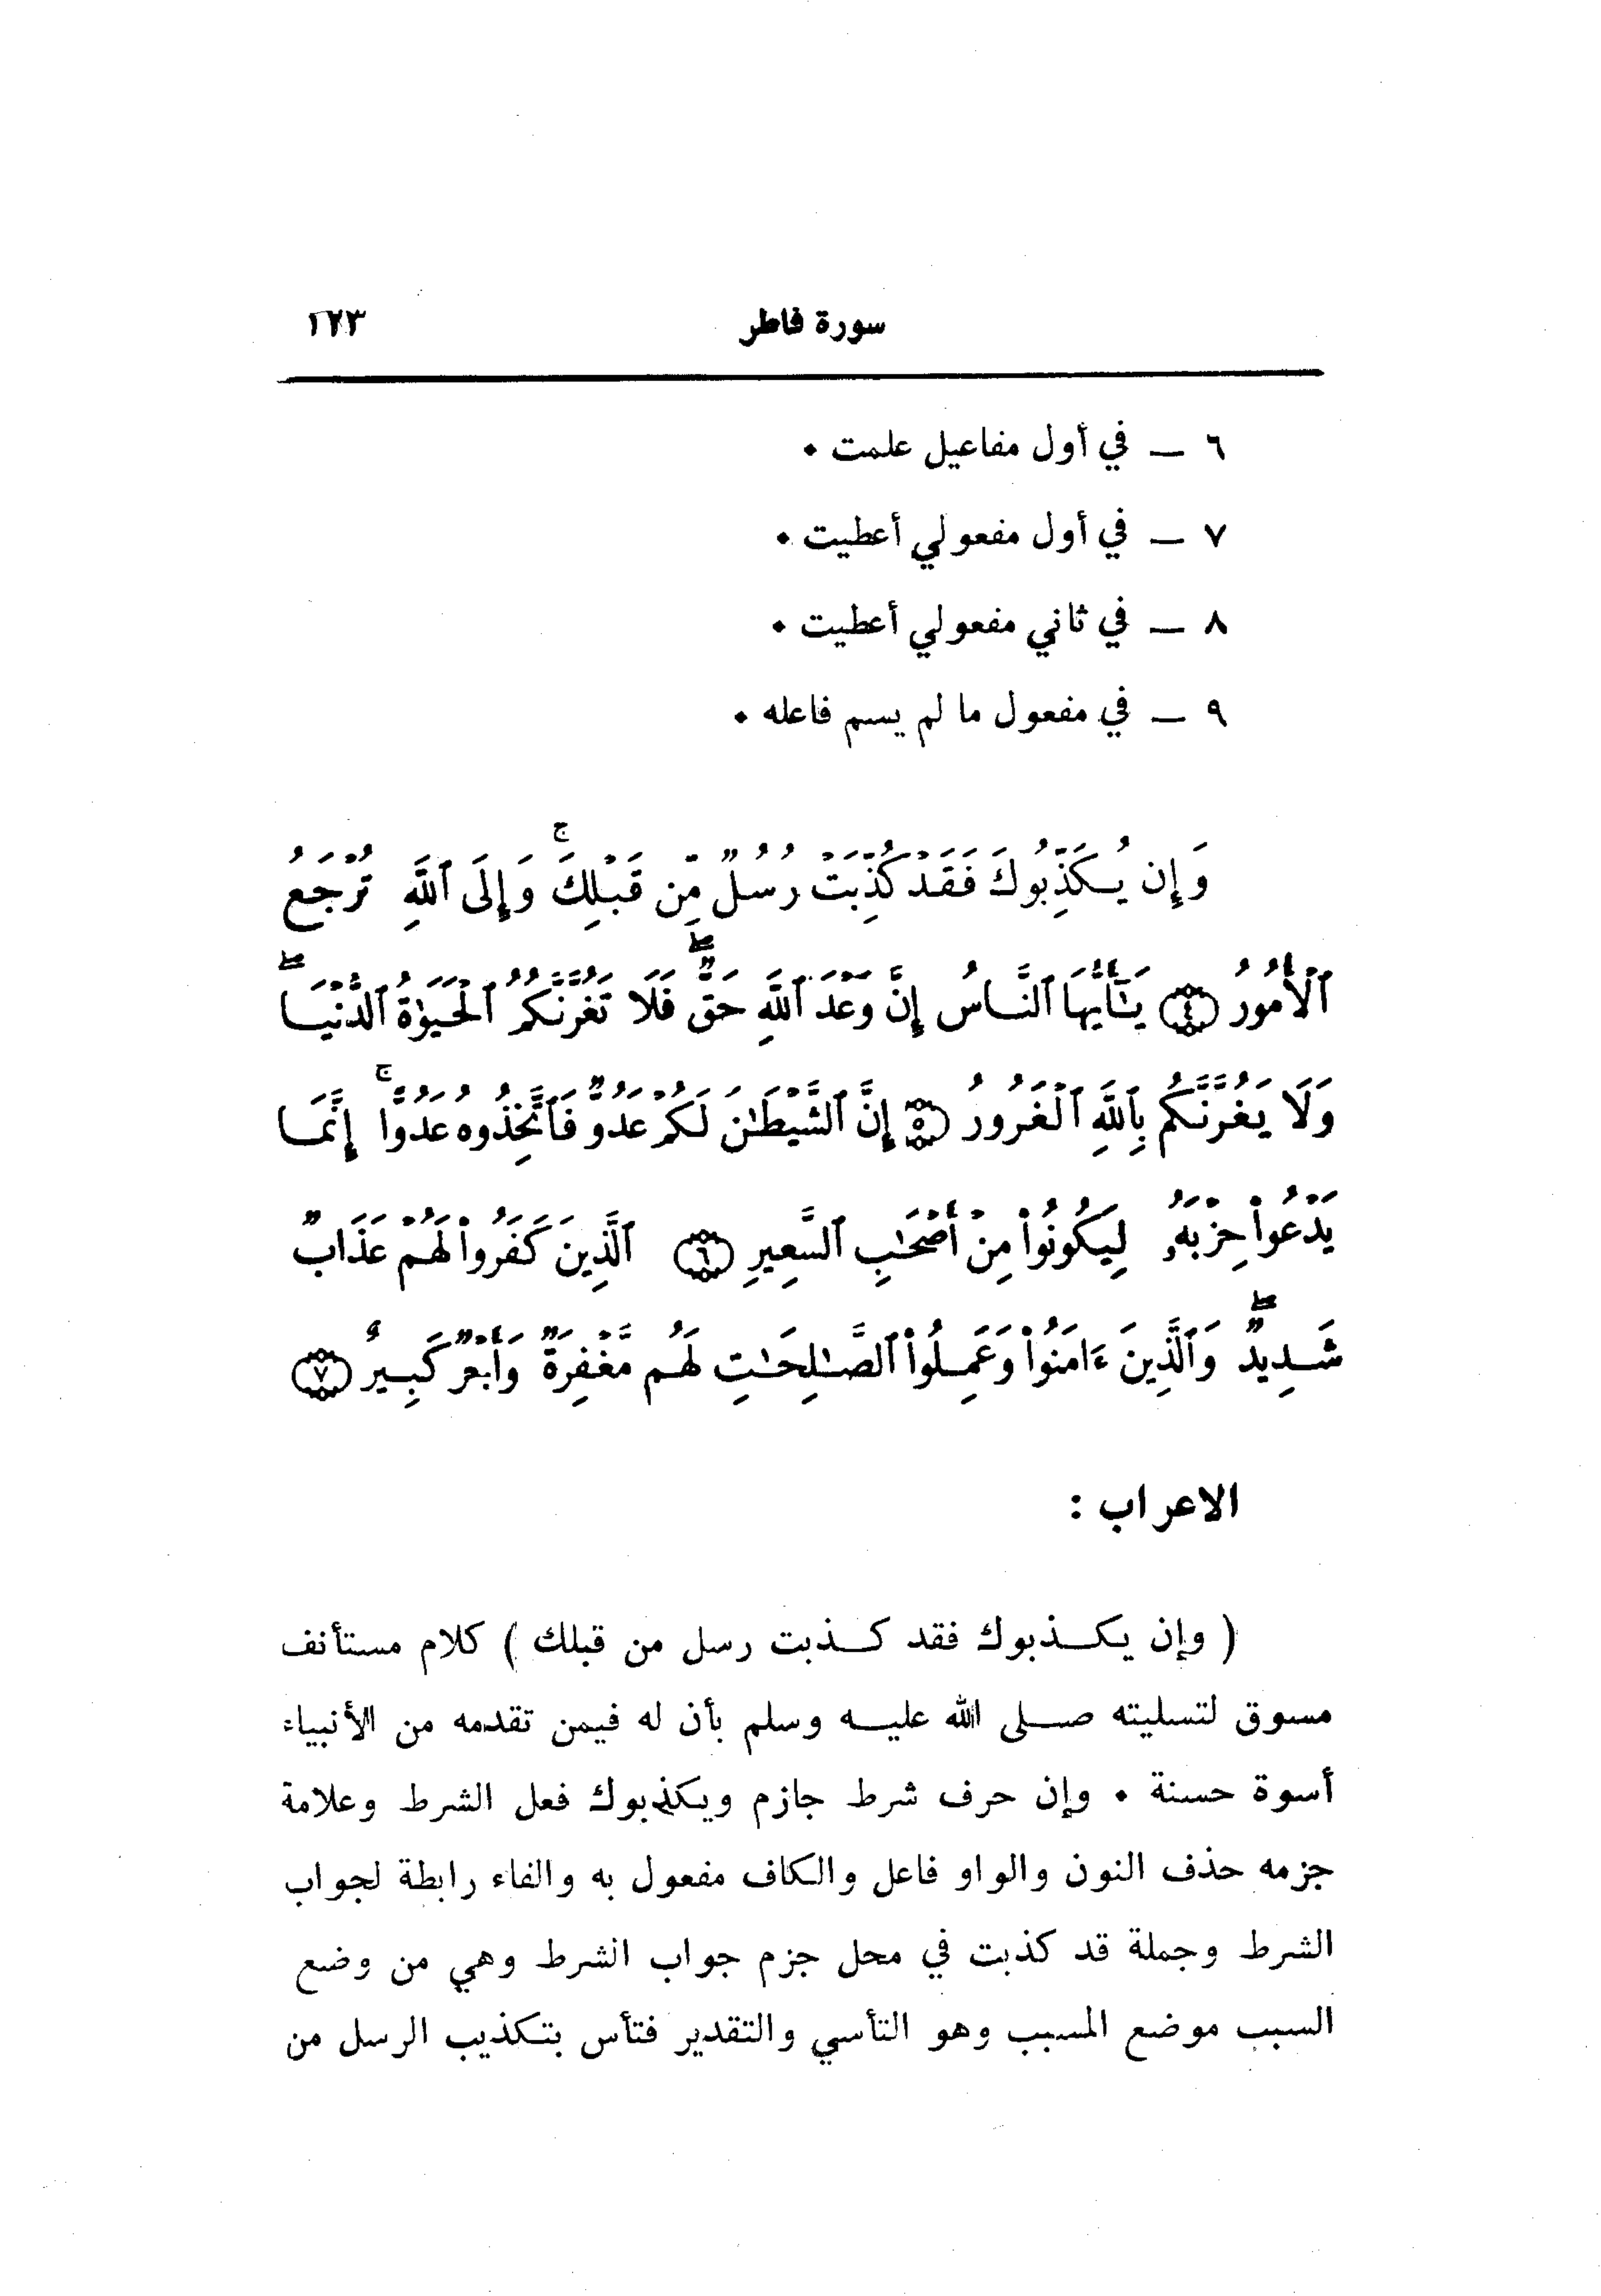 سورة فاطر ١٢٣
٦ — في أول مفاعيل علمت ٠
٧ — في أول مفعولي أعطيت ٠
٨ — في ثاني مفعولي أعطيت ٠
٩ — في مفعول ما لم يسم فاعله ٠
وَإِن يُكَذِّبُوكَ فَقَدْ كُذِّبَتْ رُسُلٌ مِّن قَبْلِكَ ۚ وَإِلَى ٱللَّهِ تُرْجَعُ
ٱلْأُمُورُ ﴿٤﴾ يَـٰٓأَيُّهَا ٱلنَّاسُ إِنَّ وَعْدَ ٱللَّهِ حَقٌّ ۖ فَلَا تَغُرَّنَّكُمُ ٱلْحَيَوٰةُ ٱلدُّنْيَا ۖ
وَلَا يَغُرَّنَّكُم بِٱللَّهِ ٱلْغَرُورُ ﴿٥﴾ إِنَّ ٱلشَّيْطَـٰنَ لَكُمْ عَدُوٌّ فَٱتَّخِذُوهُ عَدُوًّا ۚ إِنَّمَا
يَدْعُوا۟ حِزْبَهُۥ لِيَكُونُوا۟ مِنْ أَصْحَـٰبِ ٱلسَّعِيرِ ﴿٦﴾ ٱلَّذِينَ كَفَرُوا۟ لَهُمْ عَذَابٌ
شَدِيدٌ ۖ وَٱلَّذِينَ ءَامَنُوا۟ وَعَمِلُوا۟ ٱلصَّـٰلِحَـٰتِ لَهُم مَّغْفِرَةٌ وَأَجْرٌ كَبِيرٌ ﴿٧﴾
الاعراب :
( وإن يكذبوك فقد كذبت رسل من قبلك ) كلام مستأنف
مسوق لتسليته صلى الله عليه وسلم بأن له فيمن تقدمه من الأنبياء
أسوة حسنة ٠ وإن حرف شرط جازم ويكذبوك فعل الشرط وعلامة
جزمه حذف النون والواو فاعل والكاف مفعول به والفاء رابطة لجواب
الشرط وجملة قد كذبت في محل جزم جواب الشرط وهي من وضع
السبب موضع المسبب وهو التأسي والتقدير فتأس بتكذيب الرسل من